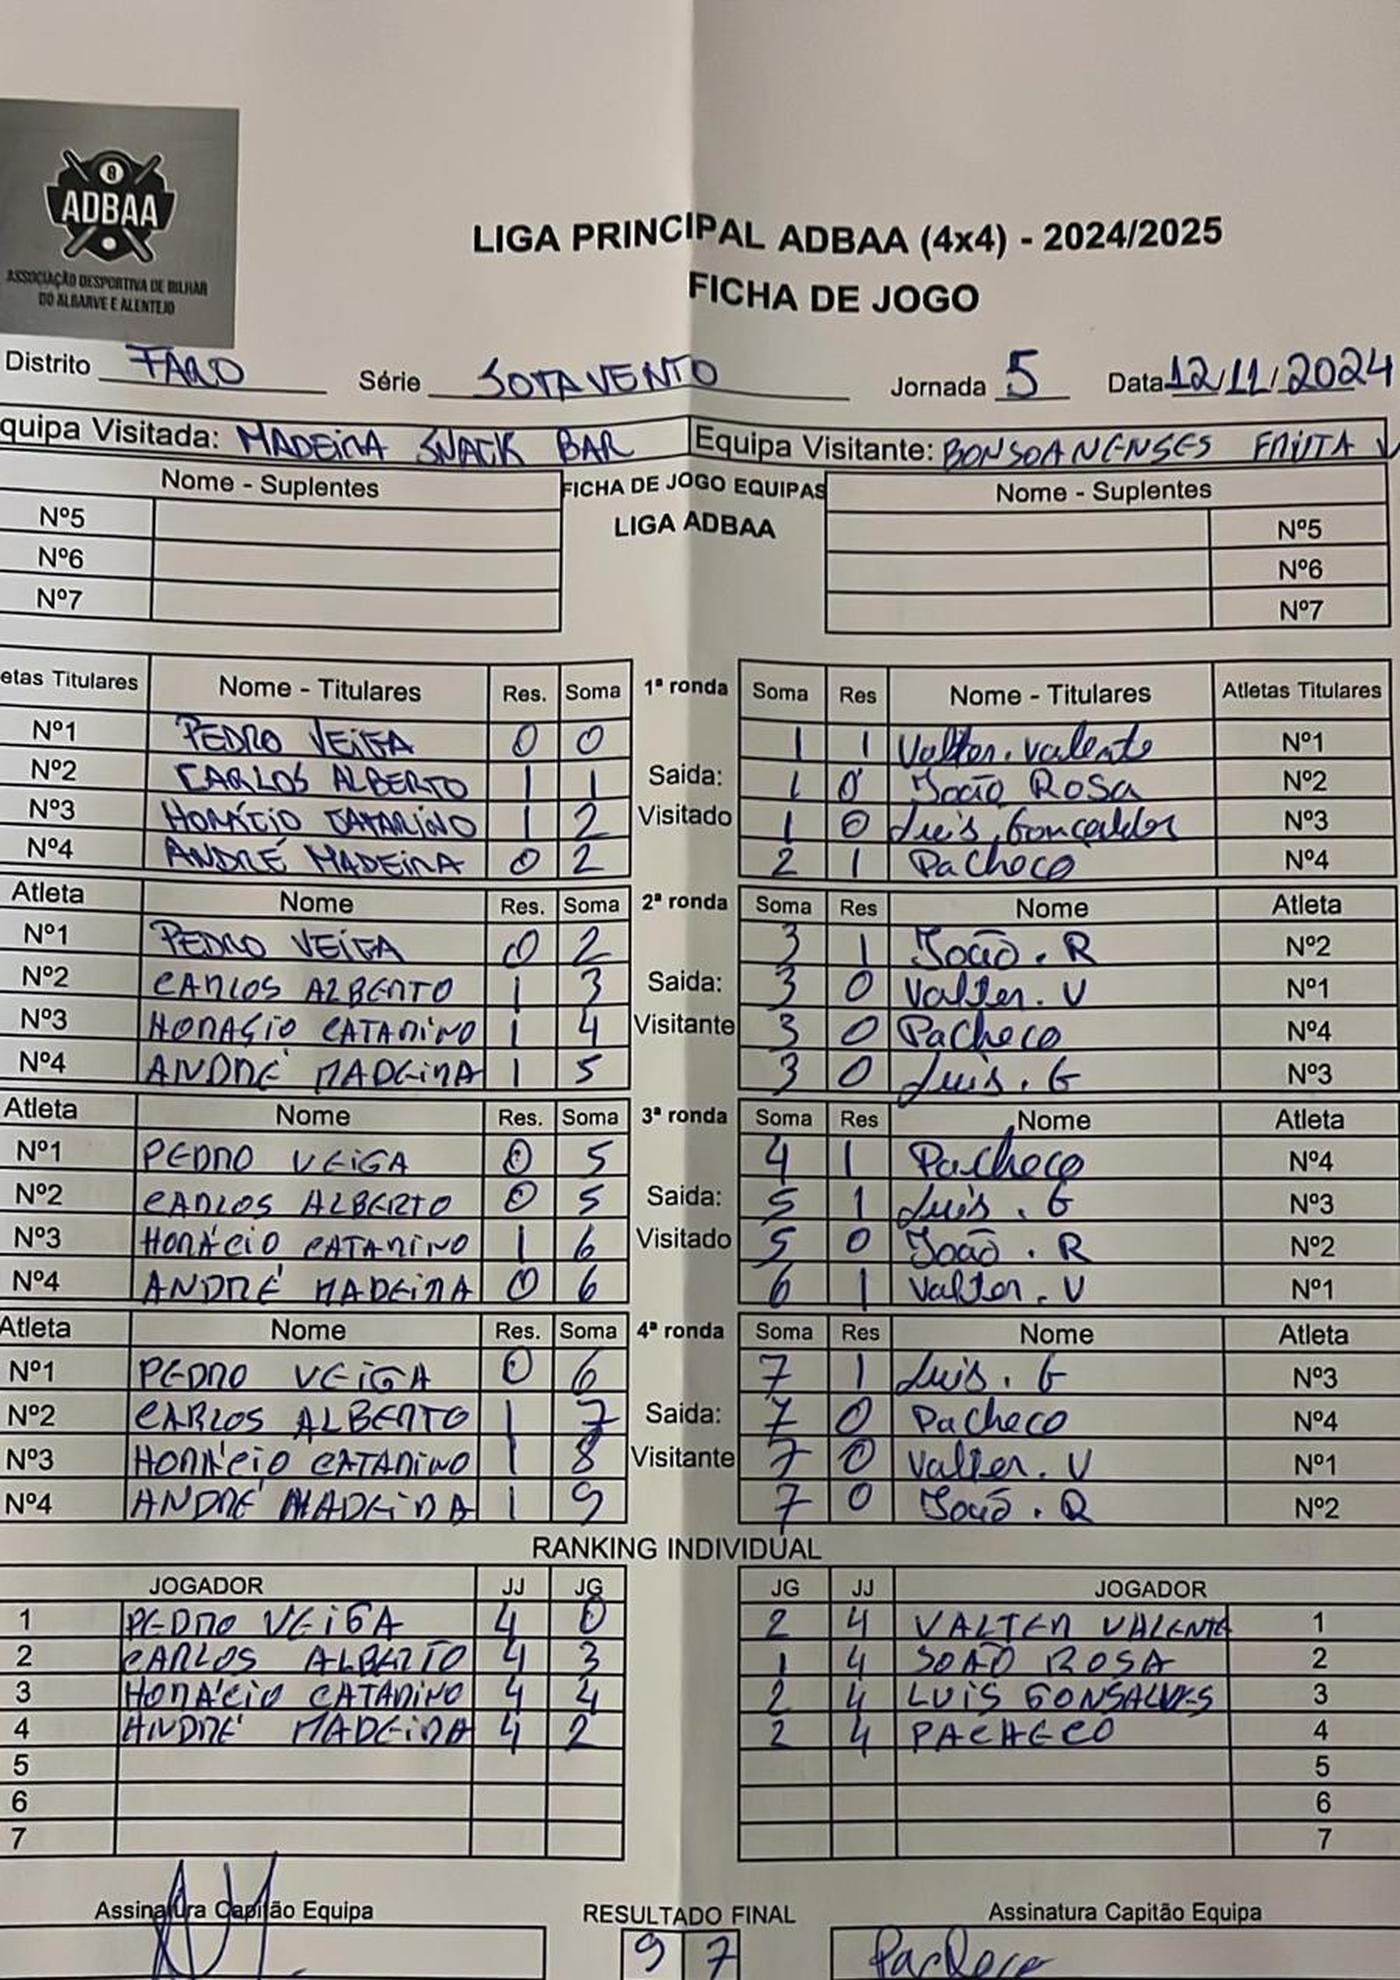 8
ADBAA
ASSOCIAÇÃO DESPORTIVA DE BILHAR
DO ALGARVE E ALENTEJO
LIGA PRINCIPAL ADBAA (4x4) - 2024/2025
FICHA DE JOGO
Distrito FARO Série SOTAVENTO Jornada 5 Data 12/11/2024
quipa Visitada: MADEIRA SNACK BAR Equipa Visitante: BONSOANENSES FRUTA V
Nome - Suplentes FICHA DE JOGO EQUIPAS Nome - Suplentes
Nº5 LIGA ADBAA Nº5
Nº6 Nº6
Nº7 Nº7
etas Titulares Nome - Titulares Res. Soma 1ª ronda Soma Res Nome - Titulares Atletas Titulares
Nº1 PEDRO VEIGA 0 0 1 1 Valter. Valente Nº1
Nº2 CARLOS ALBERTO 1 1 Saida: 1 0 João Rosa Nº2
Nº3 HORÁCIO CATARINO 1 2 Visitado 1 0 Luís Gonçalves Nº3
Nº4 ANDRÉ MADEIRA 0 2 2 1 Pacheco Nº4
Atleta Nome Res. Soma 2ª ronda Soma Res Nome Atleta
Nº1 PEDRO VEIGA 0 2 3 1 João . R Nº2
Nº2 CARLOS ALBERTO 1 3 Saida: 3 0 Valter. V Nº1
Nº3 HORÁCIO CATARINO 1 4 Visitante 3 0 Pacheco Nº4
Nº4 ANDRÉ MADEIRA 1 5 3 0 Luís. G Nº3
Atleta Nome Res. Soma 3ª ronda Soma Res Nome Atleta
Nº1 PEDRO VEIGA 0 5 4 1 Pacheco Nº4
Nº2 CARLOS ALBERTO 0 5 Saida: 5 1 Luís . G Nº3
Nº3 HORÁCIO CATARINO 1 6 Visitado 5 0 João . R Nº2
Nº4 ANDRÉ MADEIRA 0 6 6 1 Valter. V Nº1
Atleta Nome Res. Soma 4ª ronda Soma Res Nome Atleta
Nº1 PEDRO VEIGA 0 6 7 1 Luís. G Nº3
Nº2 CARLOS ALBERTO 1 7 Saida: 7 0 Pacheco Nº4
Nº3 HORÁCIO CATARINO 1 8 Visitante 7 0 Valter. V Nº1
Nº4 ANDRÉ MADEIRA 1 9 7 0 João . R Nº2
RANKING INDIVIDUAL
JOGADOR JJ JG JG JJ JOGADOR
1 PEDRO VEIGA 4 0 2 4 VALTER VALENTE 1
2 CARLOS ALBERTO 4 3 1 4 JOÃO ROSA 2
3 HORÁCIO CATARINO 4 4 2 4 LUIS GONSALVES 3
4 ANDRÉ MADEIRA 4 2 2 4 PACHECO 4
5 5
6 6
7 7
Assinatura Capitão Equipa RESULTADO FINAL Assinatura Capitão Equipa
9 7 Pacheco